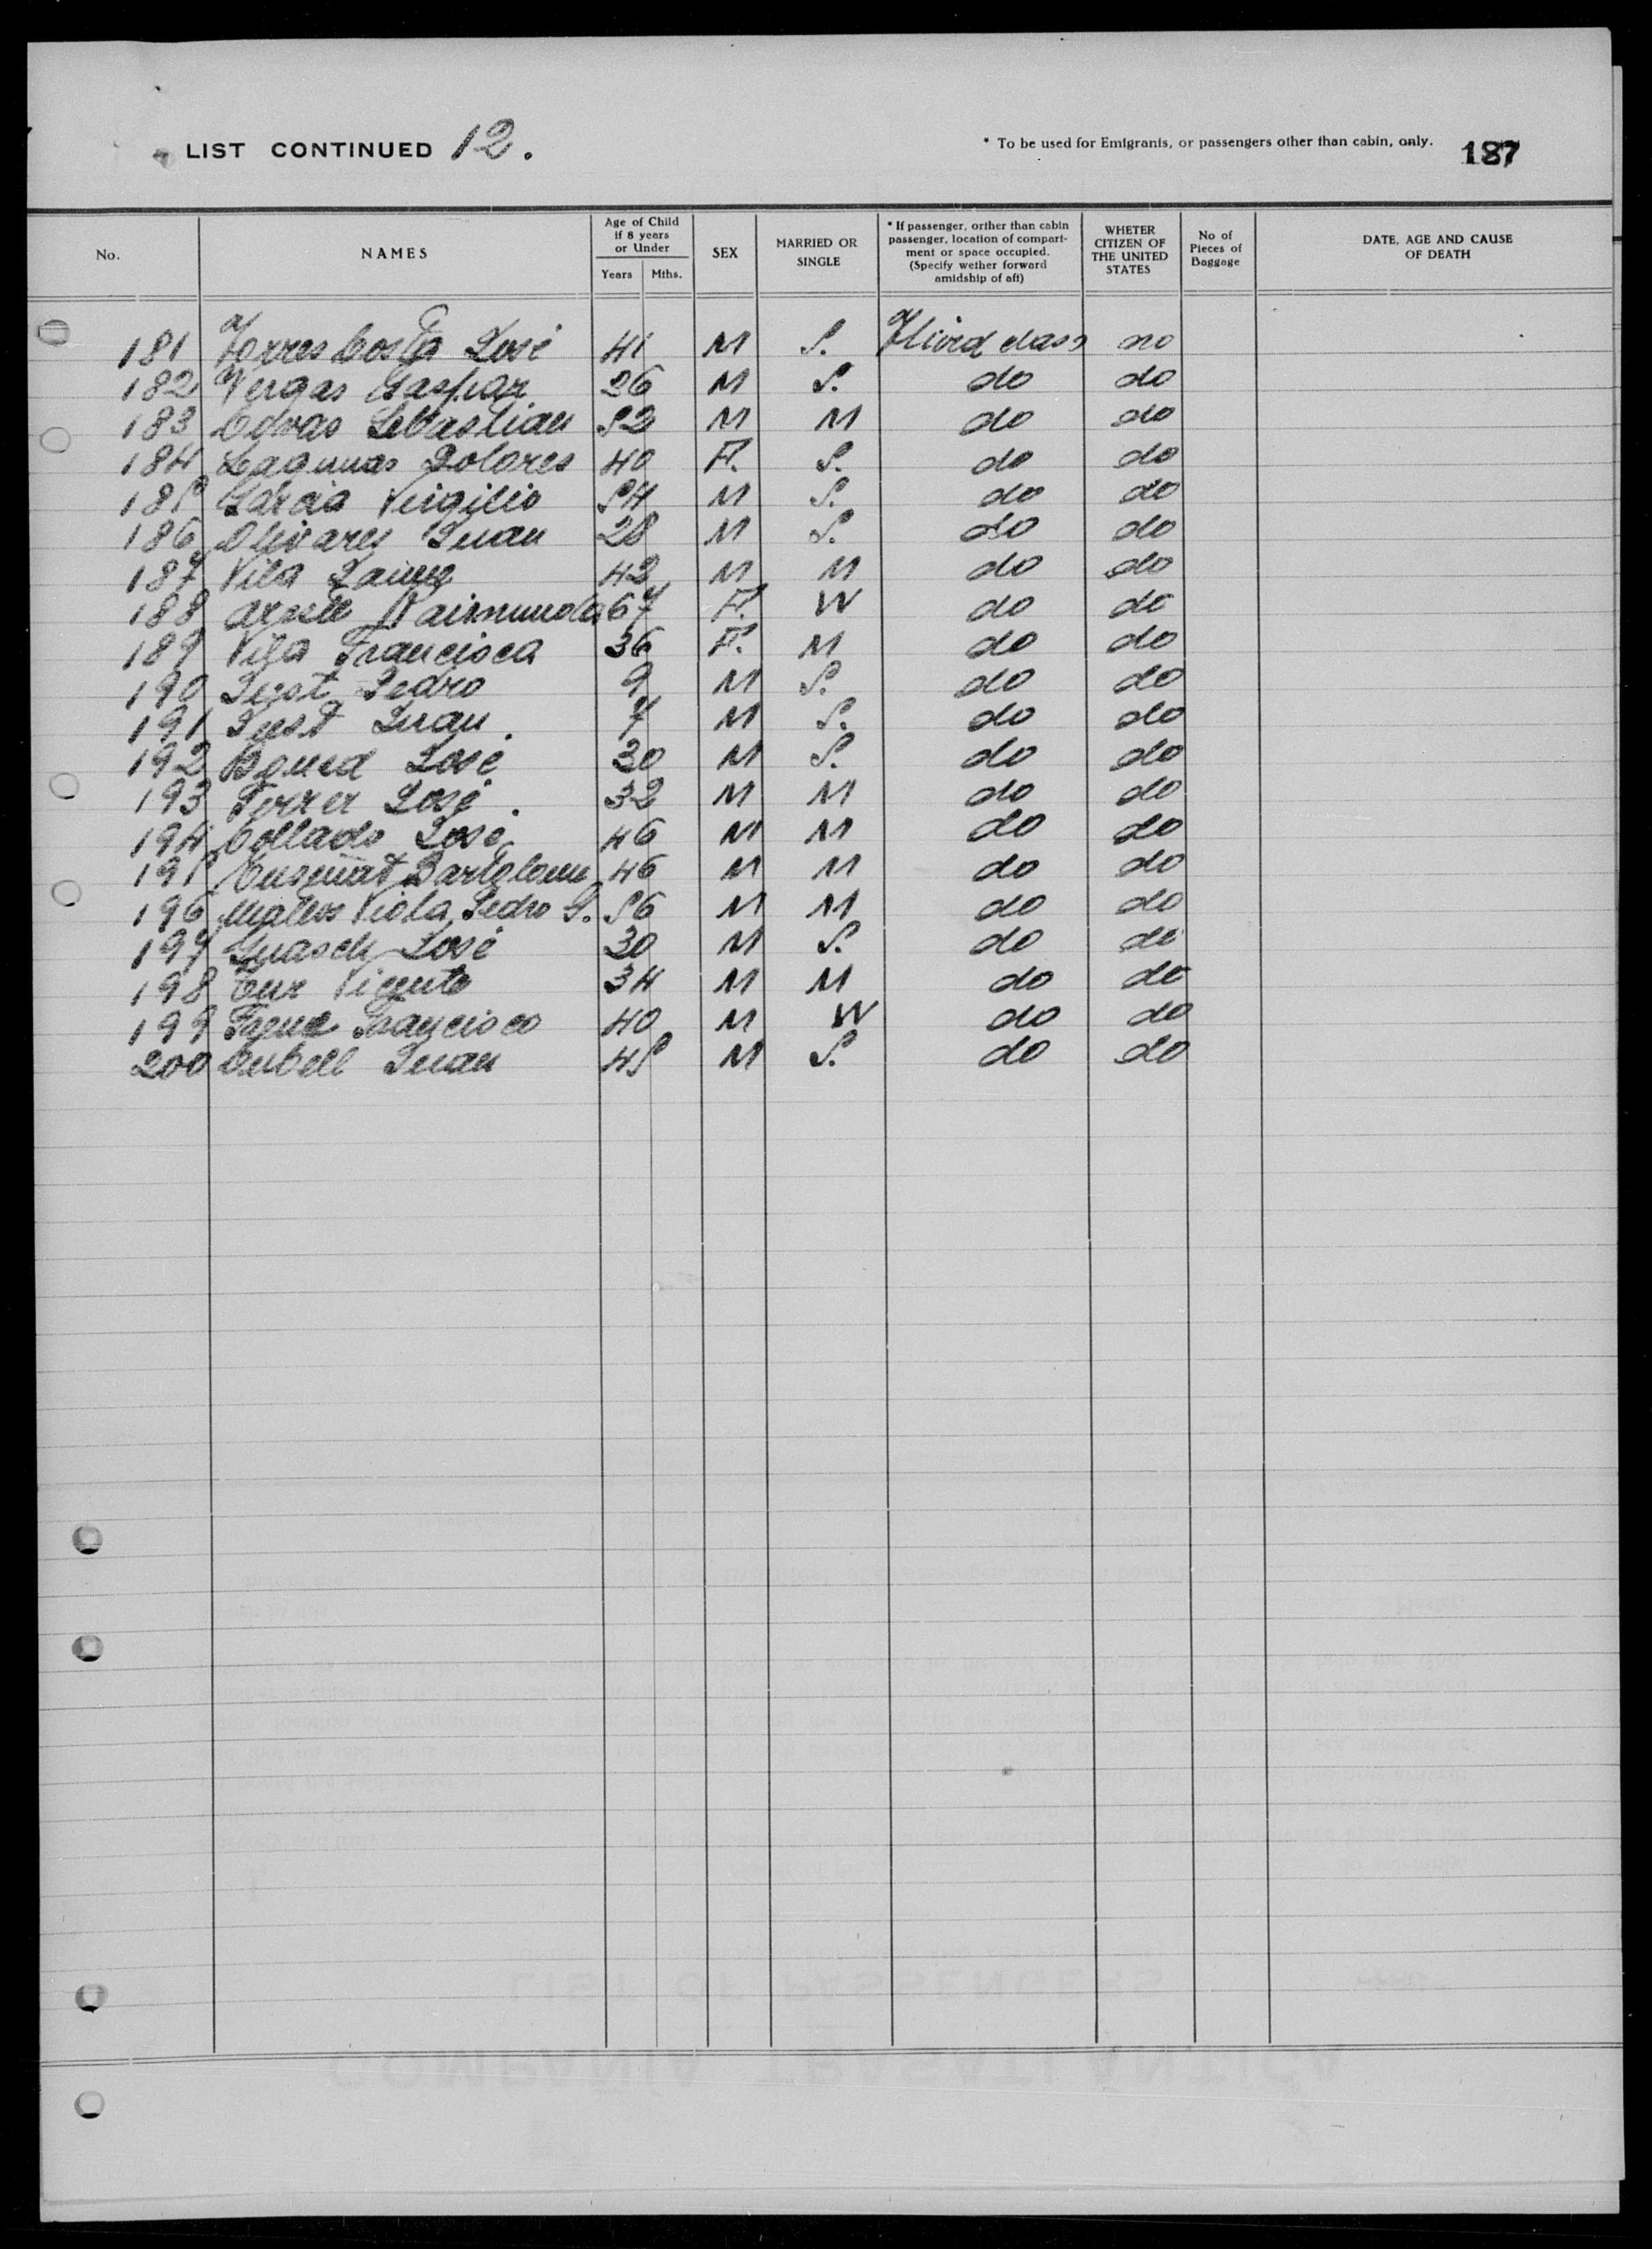 LIST CONTINUED 12.
* To be used for Emigrants, or passengers other than cabin, only. 187
No. NAMES Age of Child if 8 years or Under Years Mths. SEX MARRIED OR SINGLE * If passenger, orther than cabin passenger, location of compartment or space occupied. (Specify wether forward amidship of aft) WHETER CITIZEN OF THE UNITED STATES No of Pieces of Baggage DATE, AGE AND CAUSE OF DEATH
181 Torres Costa José 41 M S. Third class no
182 Vergas Gaspar 26 M S. do do
183 Sebastian 52 M M do do
184 Lagunas Dolores 40 F. S. do do
185 Garcia Virgilio 54 M S. do do
186 Olivares Juan 28 M S. do do
187 Vila Jaime 42 M M do do
188 Raimunda 67 F. W do do
189 Vila Francisca 36 F. M do do
190 Pedro 9 M S. do do
191 Juan. 7 M S. do do
192 José 30 M S. do do
193 Ferrer José. 32 M M do do
194 Collado José 46 M M do do
195 Enseñat Bartolome 46 M M do do
196 Mateos Viola Pedro G. 56 M M do do
197 Guasch José 30 M S. do do
198 Tur Vicente 34 M M do do
199 Francisco 40 M W do do
200 Juan 45 M S. do do